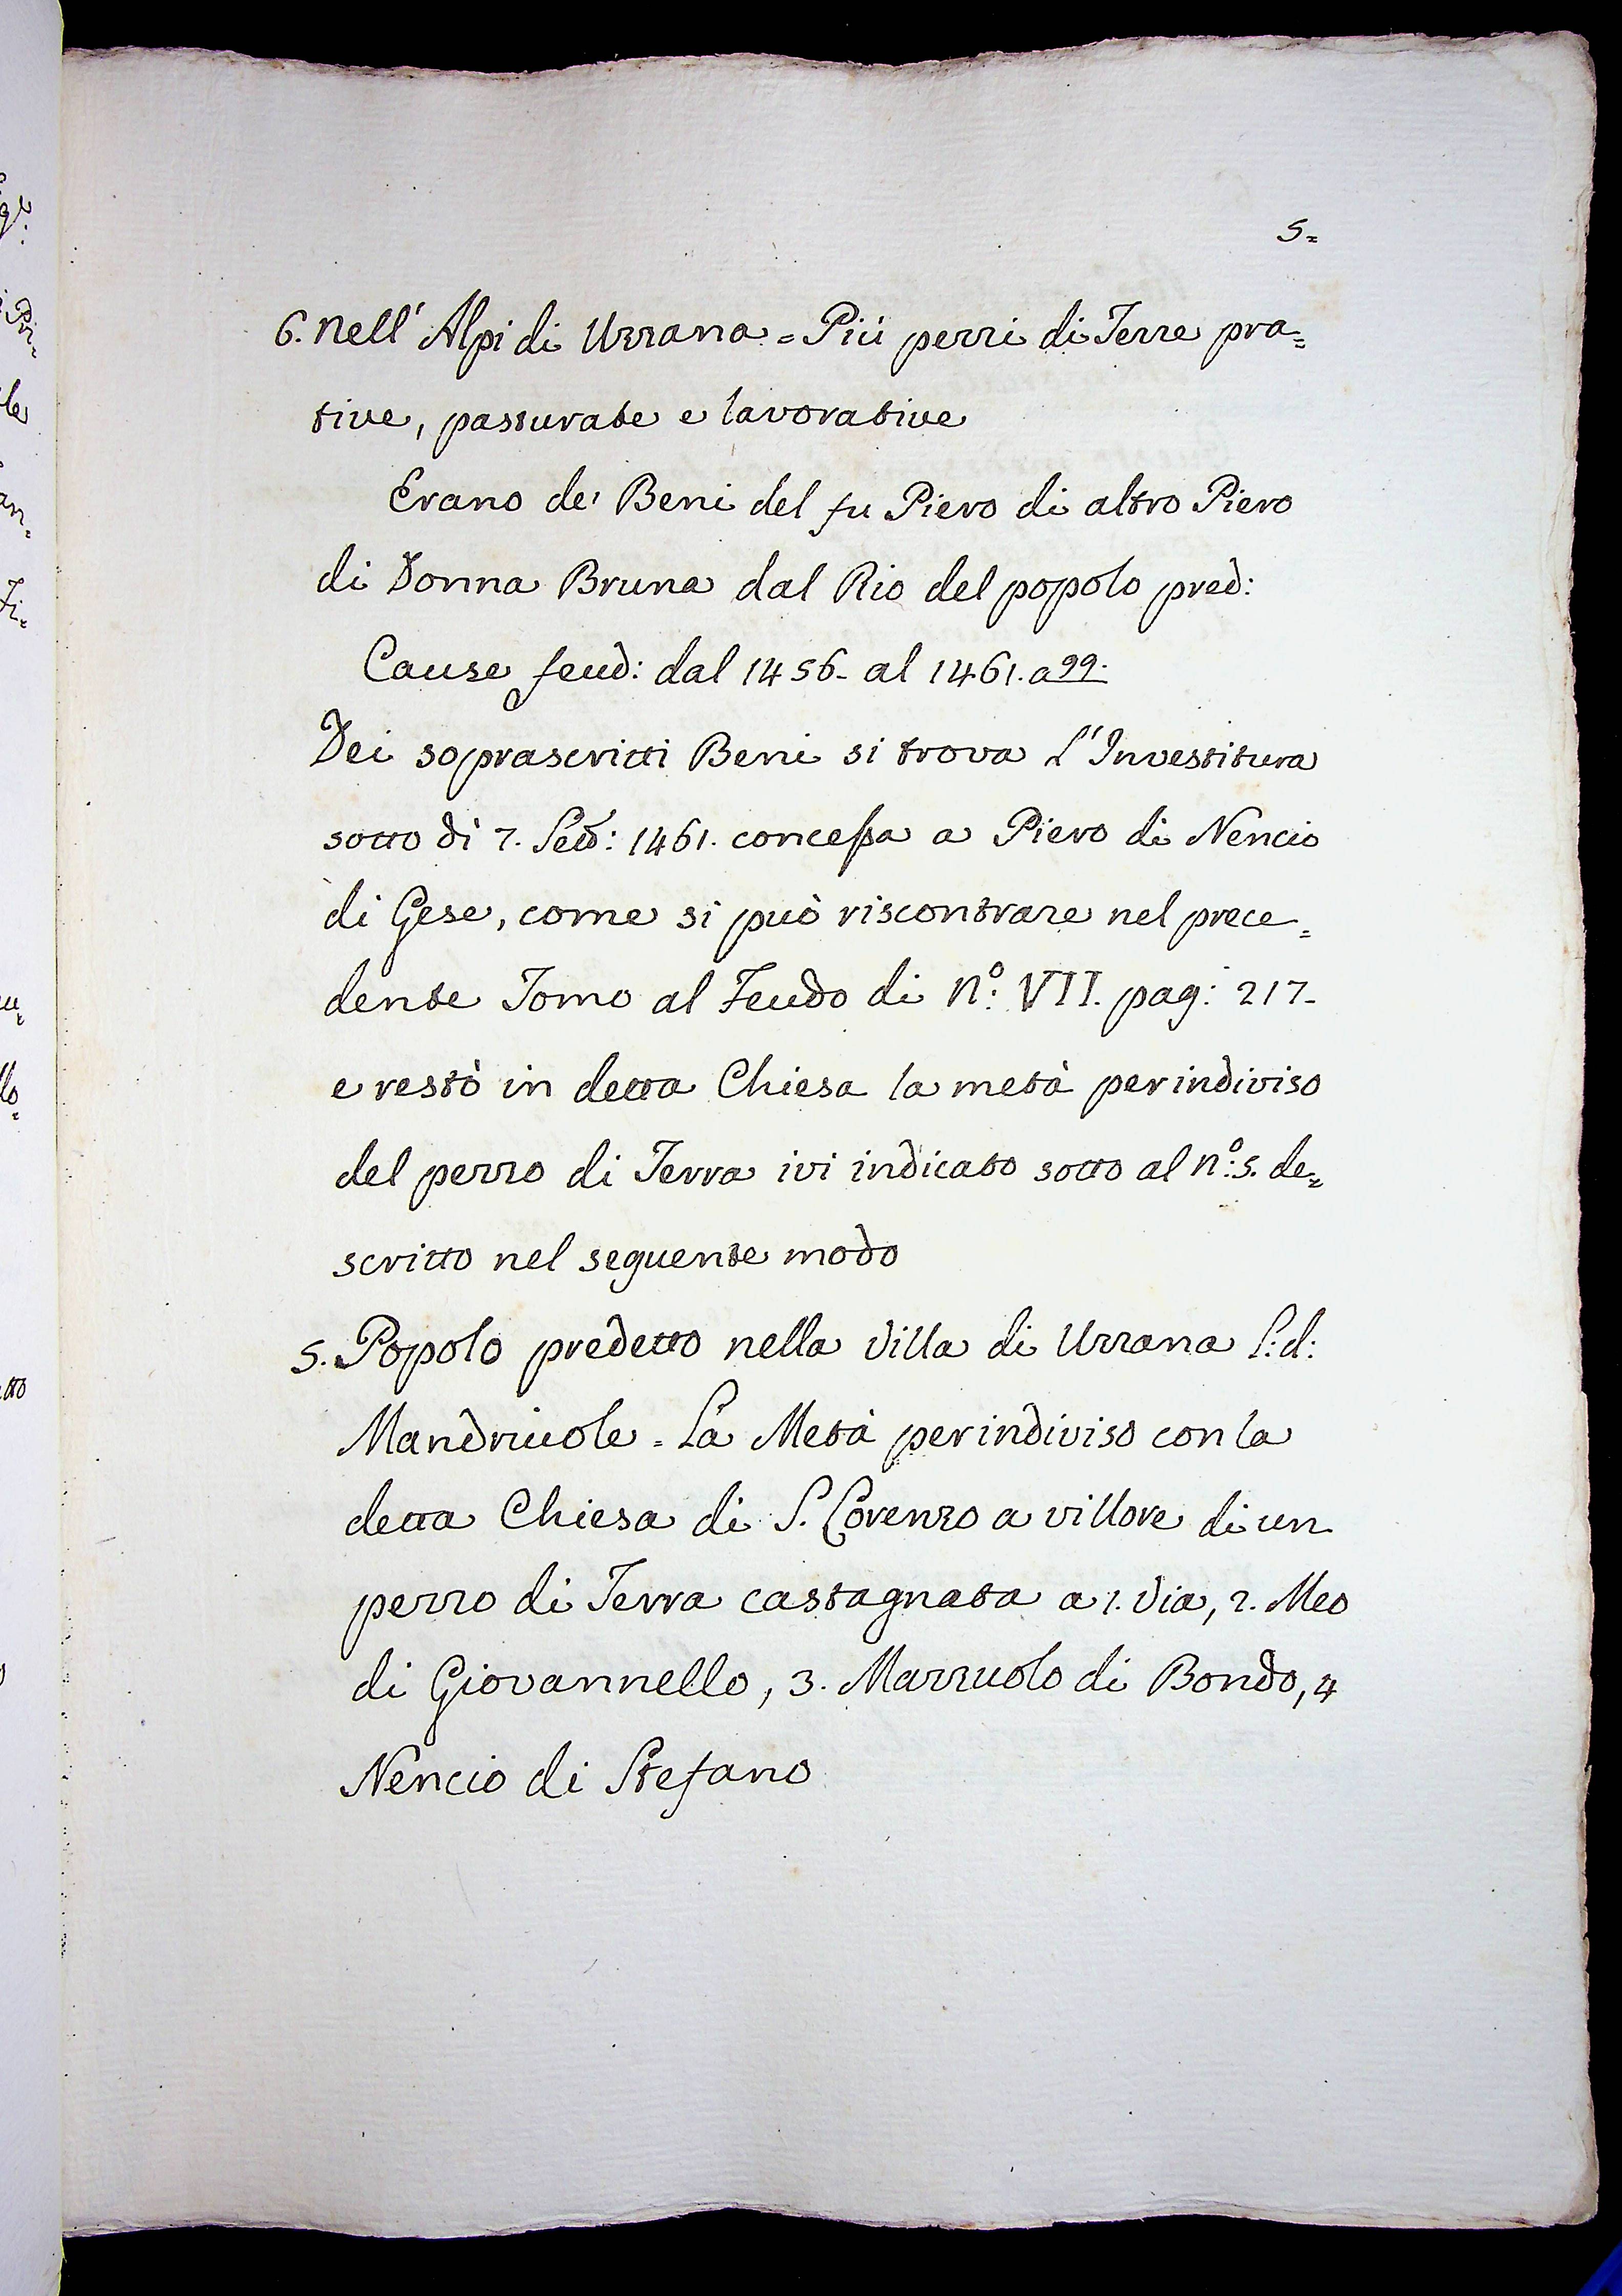 5=
6. Nell' Alpi di Uzzana = Più pezzi di Terre pra=
tive, pasturate e lavorative
Erano de' Beni del fu Piero di altro Piero
di Donna Bruna dal Rio del popolo pred:
Cause feud: dal 1456. al 1461. a 99.
Dei soprascritti Beni si trova L'Investitura
sotto dì 7. Sett: 1461. concessa a Piero di Nencio
di Gese, come si può riscontrare nel prece=
dente Tomo al Feudo di N.º: VII. pag: 217.
e restò in detta Chiesa la metà perindiviso
del pezzo di Terra ivi indicato sotto al n.º: 5. de=
scritto nel seguente modo
5. Popolo predetto nella Villa di Uzzana l: d:
Mandriuole = La Metà perindiviso con la
detta Chiesa di S. Lorenzo a villore di un
pezzo di Terra castagnata a 1. Via, 2. Meo
di Giovannello, 3. Mazzuolo di Bondo, 4
Nencio di Stefano